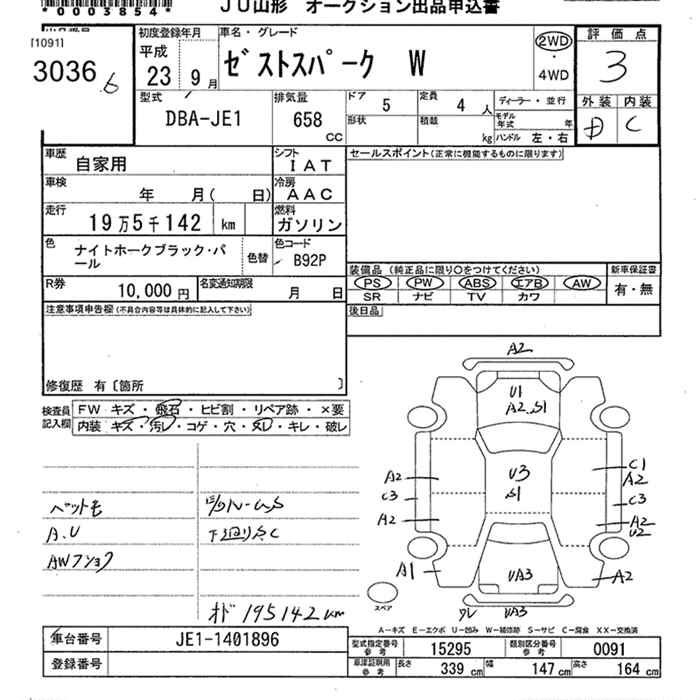 *0003854*
JU山形 オークション出品申込書
[1091]
3036 6
初度登録年月
平成 23年 9月
車名・グレード
ゼストスパーク W
2WD
・
4WD
評価点
3
外装 内装
D C
型式
DBA-JE1
排気量
658 CC
ドア 5
定員 4人
ディーラー・並行
形状
積載 kg
モデル年式 年
ハンドル 左・右
車歴 自家用
シフト IAT
セールスポイント(正常に機能するものに限ります)
車検 年 月( 日)
冷房 AAC
走行 19万5千142 km
燃料 ガソリン
色 ナイトホークブラック・パール
色替
色コード B92P
装備品 (純正品に限り○をつけてください)
新車保証書
PS PW ABS エアB AW
有・無
SR ナビ TV カワ
R券 10,000円
名変通知期限 月 日
後日品
注意事項申告欄(不具合内容等は具体的に記入して下さい)
修復歴 有〔箇所 〕
検査員記入欄
FW キズ・飛石・ヒビ割・リペア跡・×要
内装 キズ・汚レ・コゲ・穴・ヌレ・キレ・破レ
A2
U1
A2.S1
U3
S1
C1
A2
A2
C3
C3
A2
A2
U2
A1
UA3
A2
UA3
スペア
ペット毛
A.U
下廻りS.C
オド 195142km
A−キズ E−エクボ U−凹み W−補修跡 S−サビ C−腐食 XX−交換済
車台番号 JE1-1401896
登録番号
型式指定番号 参考 15295
類別区分番号 参考 0091
車庫証明用 参考 長さ 339 cm 幅 147 cm 高さ 164 cm